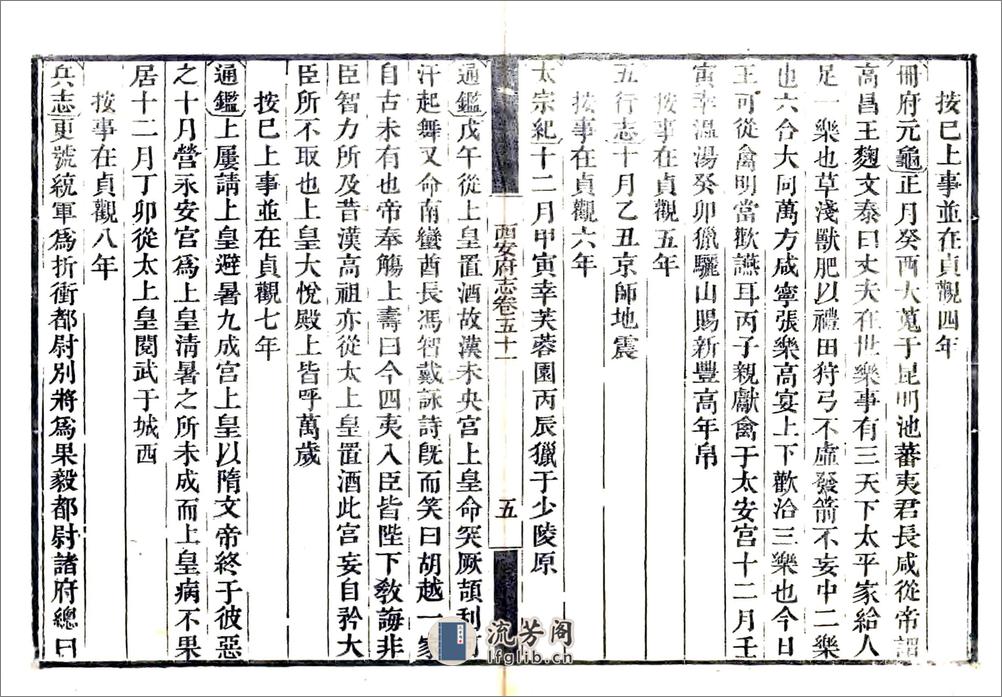 按已上事並在貞觀四年
冊府元龜正月癸酉大蒐于昆明池蕃夷君長咸從帝謂
高昌王麴文泰曰丈夫在世樂事有三天下太平家給人
足一樂也草淺獸肥以禮田狩弓不虛發箭不妄中二樂
也六合大同萬方咸寧張樂高宴上下歡洽三樂也今日
王可從禽明當歡讌耳丙子親獻禽于太安宮十二月壬
寅幸溫湯癸卯獵驪山賜新豐高年帛
按事在貞觀五年
五行志十月乙丑京師地震
按事在貞觀六年
太宗紀十二月甲寅幸芙蓉園丙辰獵于少陵原
西安府志卷五十一
五
通鑑戊午從上皇置酒故漢未央宮上皇命突厥頡利可
汗起舞又命南蠻酋長馮智戴詠詩旣而笑曰胡越一家
自古未有也帝奉觴上壽曰今四夷入臣皆陛下敎誨非
臣智力所及昔漢高祖亦從太上皇置酒此宮妄自矜大
臣所不取也上皇大悅殿上皆呼萬歲
按已上事並在貞觀七年
通鑑上屢請上皇避暑九成宮上皇以隋文帝終于彼惡
之十月營永安宮爲上皇清暑之所未成而上皇病不果
居十二月丁卯從太上皇閱武于城西
按事在貞觀八年
兵志更號統軍爲折衝都尉別將爲果毅都尉諸府總曰
流芳阁
lfglib.cn